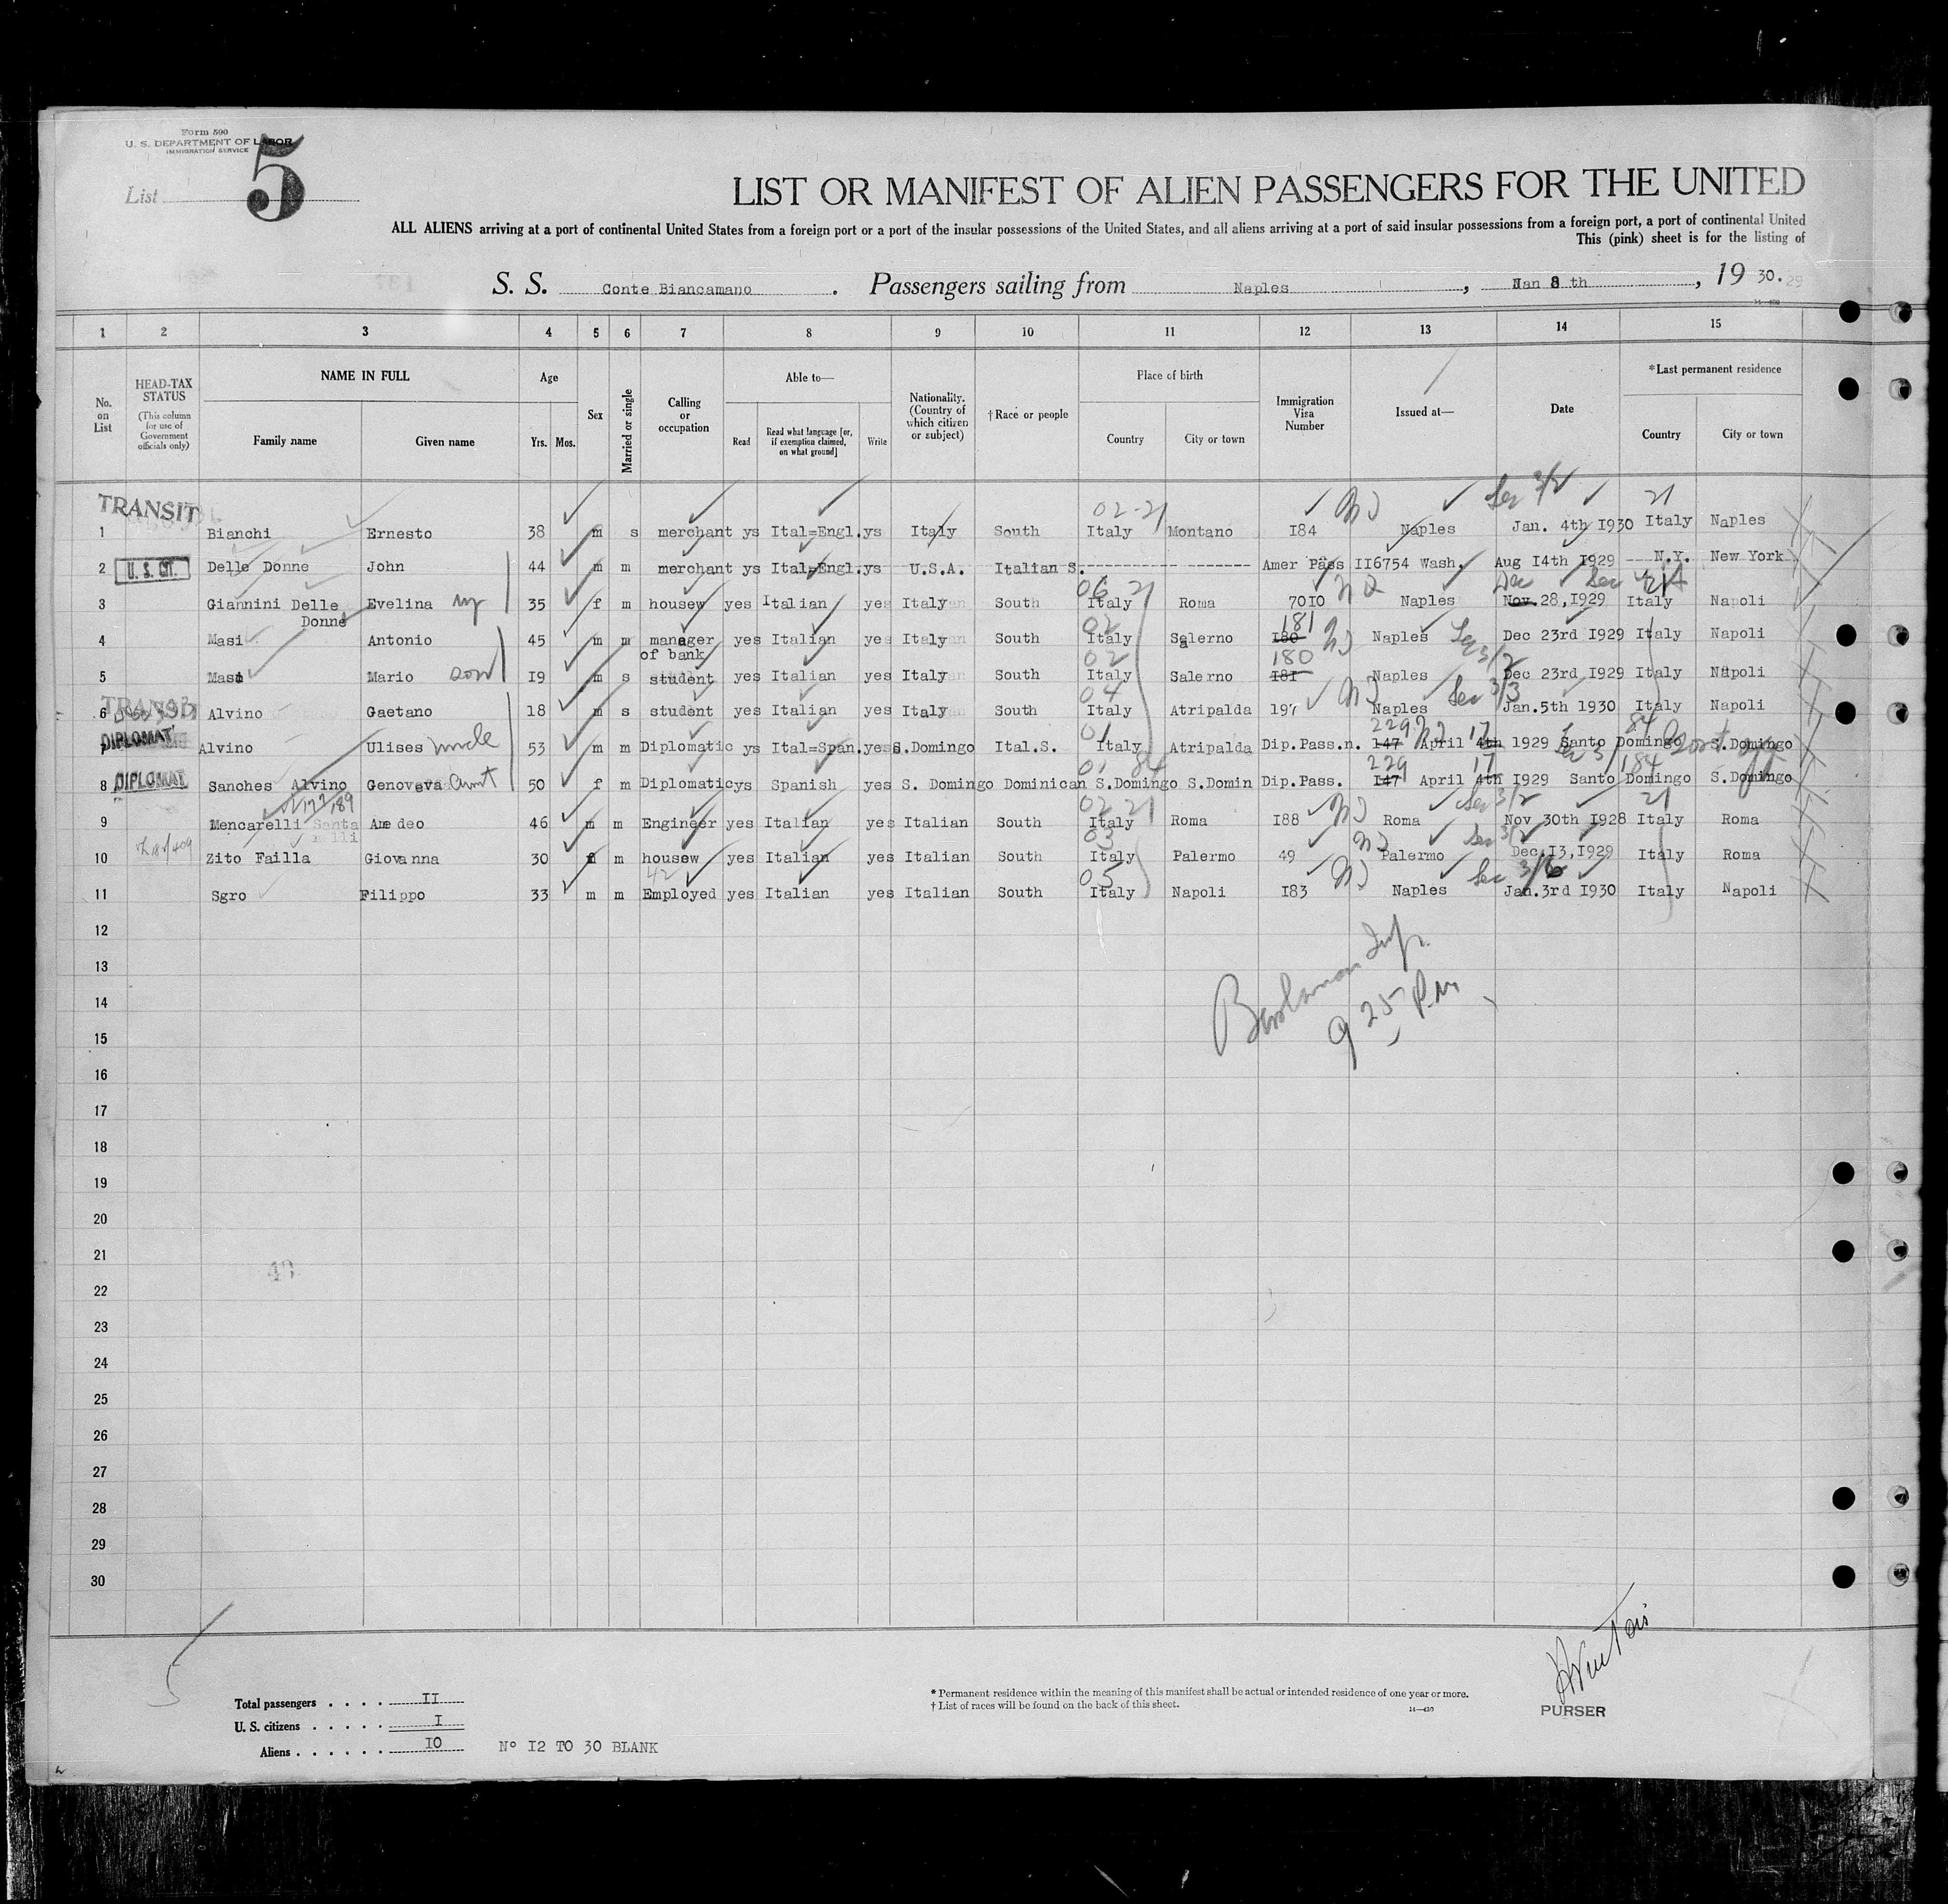 Form 500
U. S. DEPARTMENT OF LABOR
IMMIGRATION SERVICE
List 5
LIST OR MANIFEST OF ALIEN PASSENGERS FOR THE UNITED
ALL ALIENS arriving at a port of continental United States from a foreign port or a port of the insular possessions of the United States, and all aliens arriving at a port of said insular possessions from a foreign port, a port of continental United
This (pink) sheet is for the listing of
S. S. Conte Biancamano. Passengers sailing from Naples, Jan 8 th, 19 30.
1 2 3 4 5 6 7 8 9 10 11 12 13 14 15
No. on List
HEAD-TAX STATUS (This column for use of Government officials only)
NAME IN FULL
Family name Given name
Age
Yrs. Mos.
Sex
Married or single
Calling or occupation
Able to—
Read Read what language [or, if exemption claimed, on what ground] Write
Nationality. (Country of which citizen or subject)
†Race or people
Place of birth
Country City or town
Immigration Visa Number
Issued at—
Date
*Last permanent residence
Country City or town
TRANSIT 02-21 Sec 3/2 21
1 Bianchi Ernesto 38 m s merchant ys Ital=Engl. ys Italy South Italy Montano I84 Naples Jan. 4th I930 Italy Naples
2 U. S. CIT. Delle Donne John 44 m m merchant ys Ital=Engl. ys U.S.A. Italian S. Amer Pass II6754 Wash. Aug I4th I929 N.Y. New York
06 21 Dec
3 Giannini Delle Donne Evelina 35 f m housew yes Italian yes Italy South Italy Roma 70I0 Naples Nov. 28,I929 Italy Napoli
02 181
4 Masi Antonio 45 m m manager of bank yes Italian yes Italy South Italy Salerno I80 Naples Dec 23rd I929 Italy Napoli
02 180 Sec 3/2
5 Masi Mario son I9 m s student yes Italian yes Italy South Italy Salerno I8I Naples Dec 23rd I929 Italy Napoli
TRANSIT 04 Sec 3/3
6 Alvino Gaetano I8 m s student yes Italian yes Italy South Italy Atripalda I97 Naples Jan.5th I930 Italy Napoli
DIPLOMAT 01 229 17 84
7 Alvino Ulises uncle 53 m m Diplomatic ys Ital=Span. yes S.Domingo Ital.S. Italy Atripalda Dip.Pass.n. I47 April 4th I929 Santo Domingo S.Domingo
01 84 229 17 184
8 DIPLOMAT Sanches Alvino Genoveva aunt 50 f m Diplomatic ys Spanish yes S. Domingo Dominican S.Domingo S.Domin Dip.Pass. I47 April 4th I929 Santo Domingo S.Domingo
02 21 Sec 3/2 21
9 Mencarelli Amedeo 46 m m Engineer yes Italian yes Italian South Italy Roma I88 Roma Nov 30th I928 Italy Roma
03 Sec 3/2
10 Zito Failla Giovanna 30 f m housew yes Italian yes Italian South Italy Palermo 49 Palermo Dec.I3,I929 Italy Roma
42 05 Sec
11 Sgro Filippo 33 m m Employed yes Italian yes Italian South Italy Napoli I83 Naples Jan.3rd I930 Italy Napoli
12
13
14
9 25 P.M.
15
16
17
18
19
20
21
22
23
24
25
26
27
28
29
30
5
Total passengers . . . . II
U. S. citizens . . . . . I
Aliens . . . . . . I0
Nº I2 TO 30 BLANK
* Permanent residence within the meaning of this manifest shall be actual or intended residence of one year or more.
† List of races will be found on the back of this sheet.
14—430
PURSER